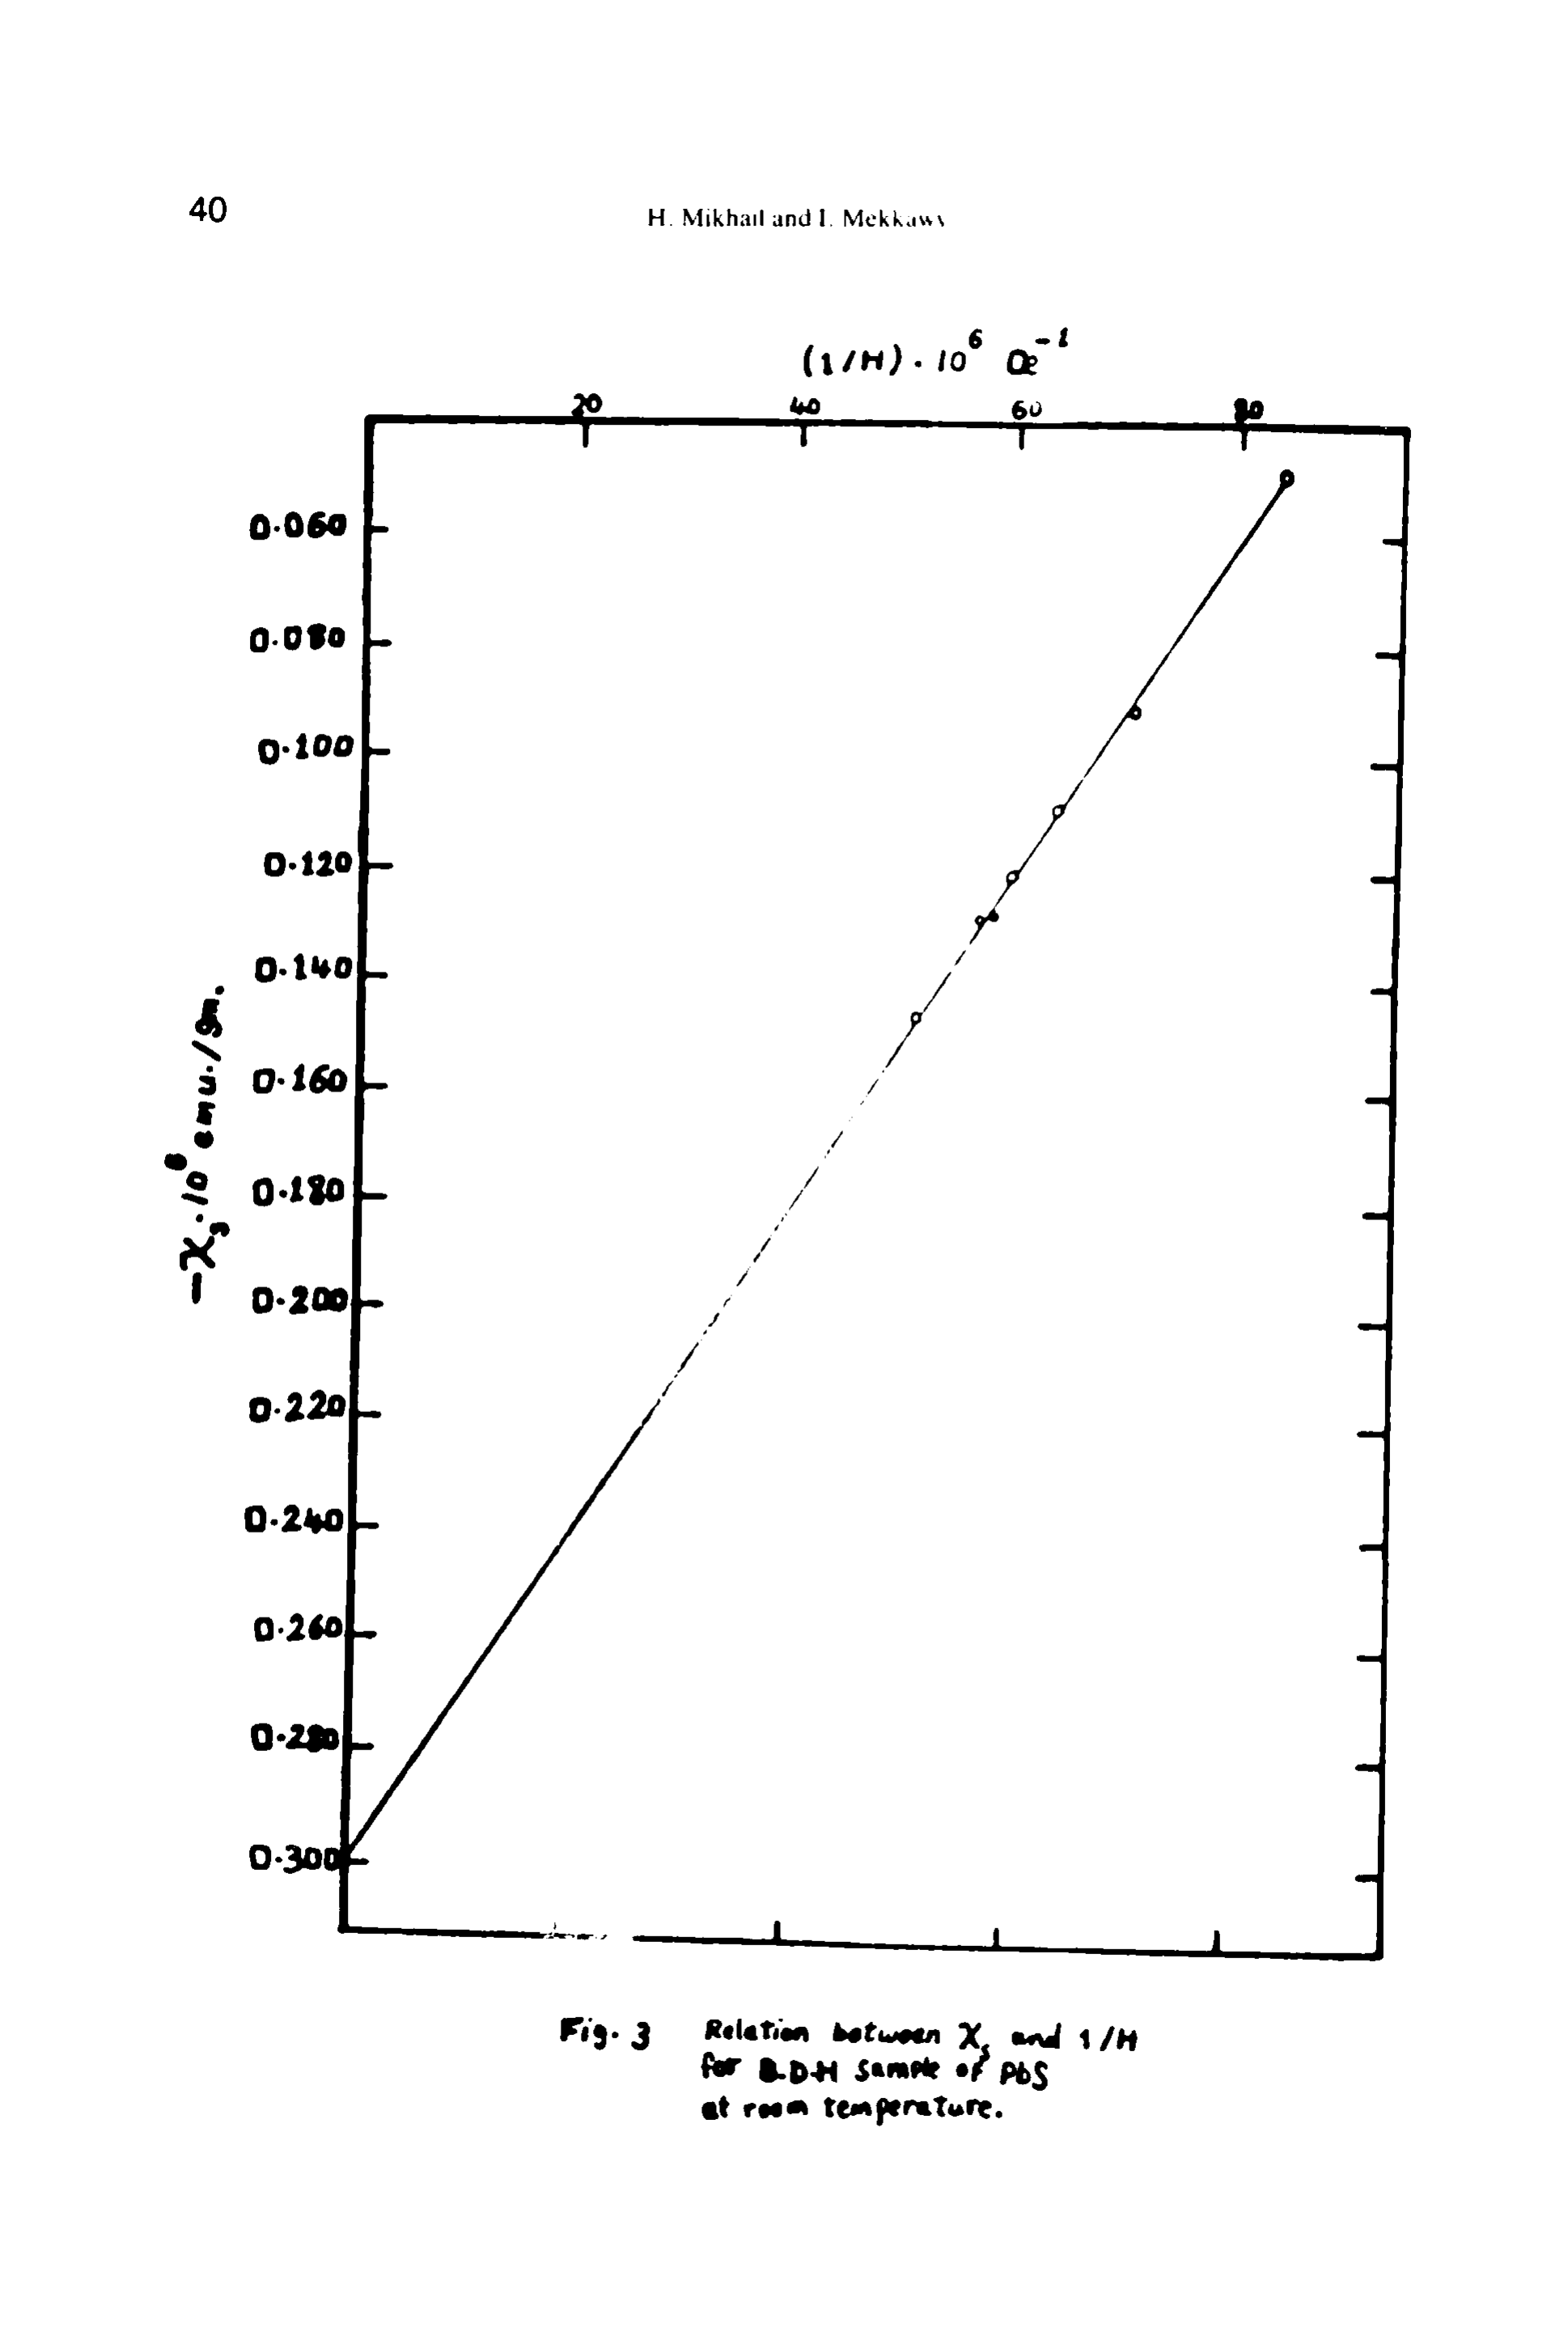 40
H. Mikhail and I. Mekkawy
(1/H) . 10⁶ Oe⁻¹
20 40 60 80
0.060
0.080
0.100
0.120
0.140
0.160
0.180
0.200
0.220
0.240
0.260
0.280
0.300
-χg . 10⁶ emu./gm.
Fig. 3 Relation between χg and 1/H
for B.D.H Sample of PbS
at room temperature.